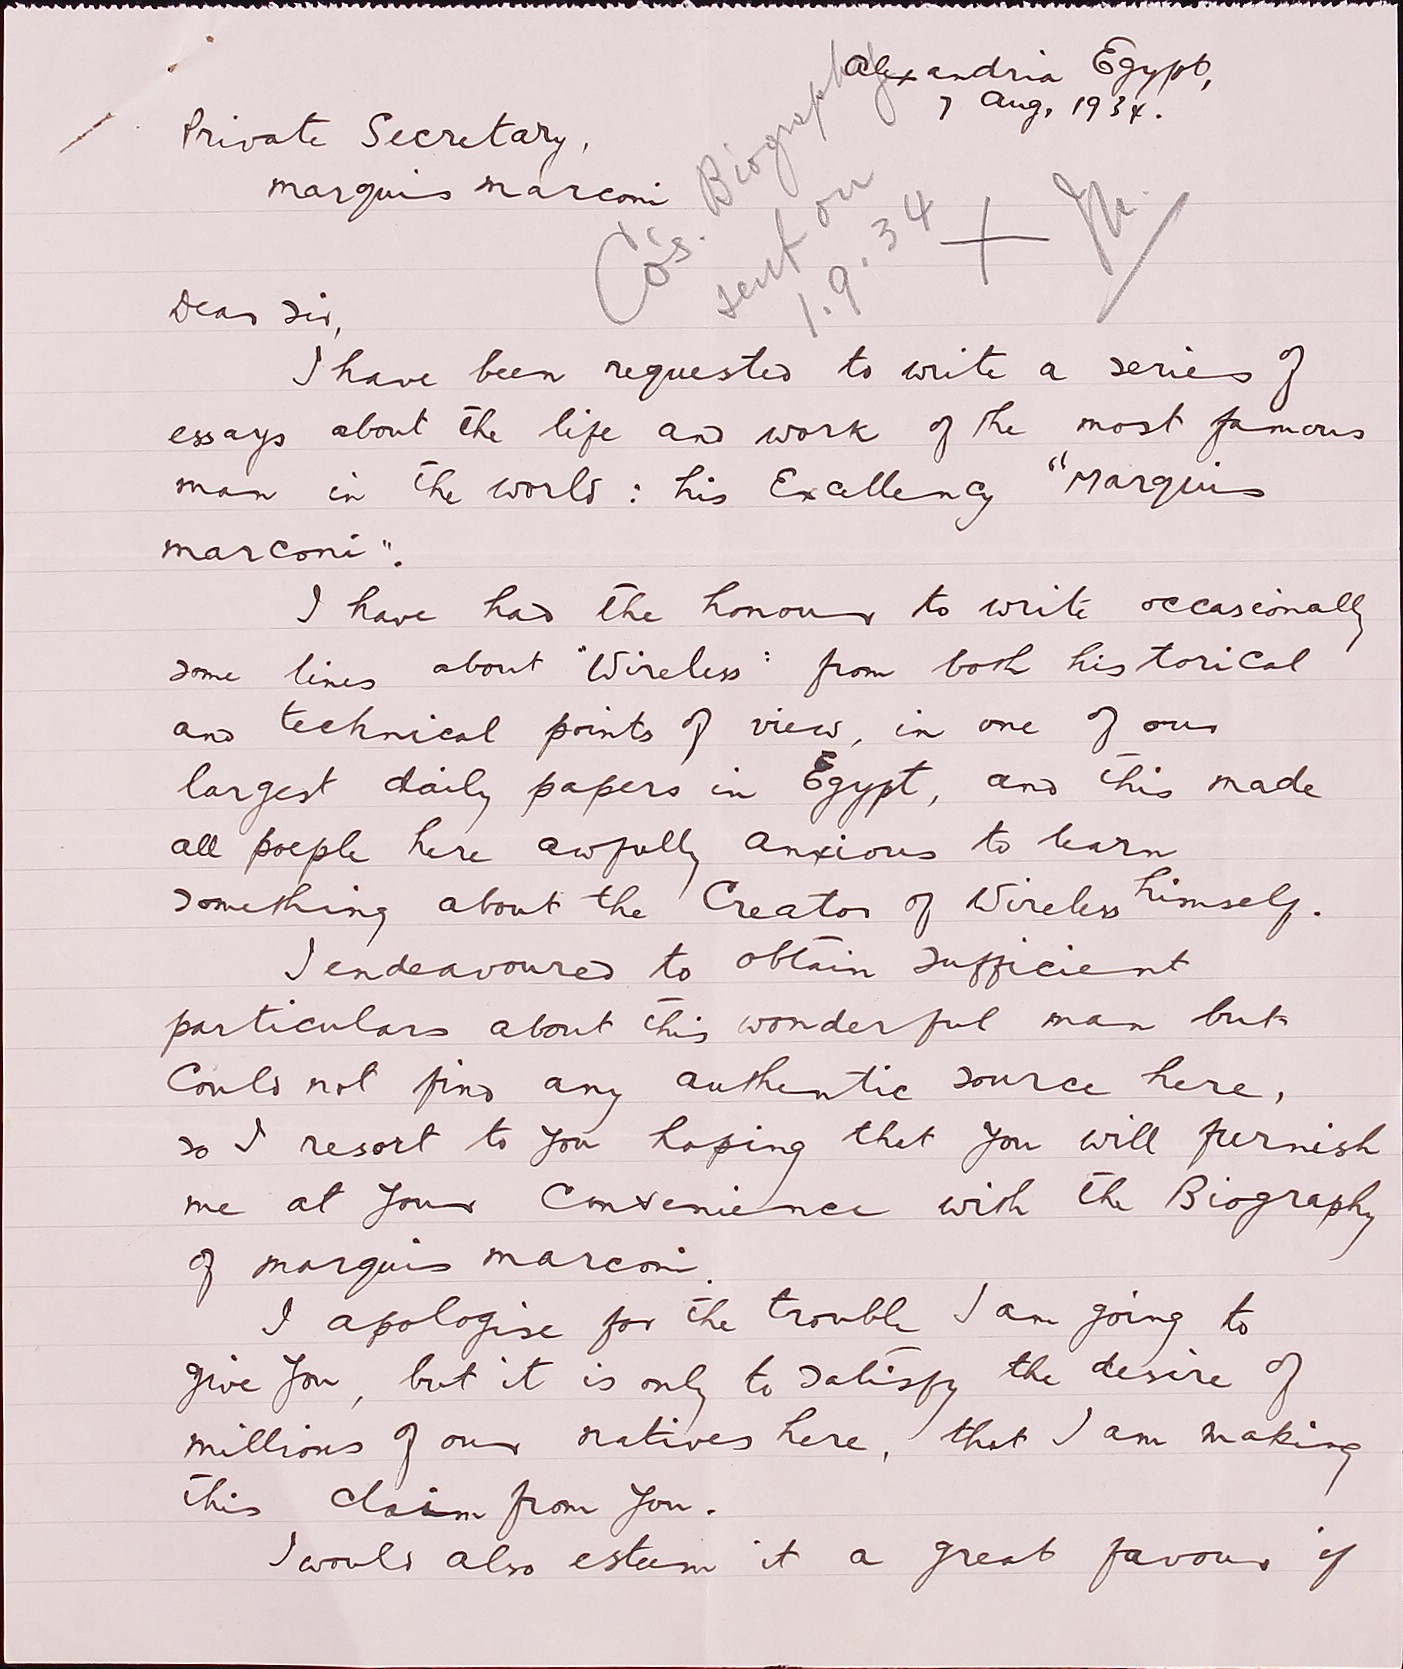 Alexandria Egypt,
7 Aug, 1934.
Private Secretary,
Marquis Marconi
Co's. Biography
sent on
1.9.34
Dear Sir,
I have been requested to write a series of
essays about the life and work of the most famous
man in the world : his Excellency "Marquis
Marconi".
I have had the honour to write occasionally
some lines about "Wireless" from both historical
and technical points of view, in one of our
largest daily papers in Egypt, and this made
all poeple here awfully anxious to learn
something about the Creator of Wireless himself.
I endeavoured to obtain sufficient
particulars about this wonderful man but
could not find any authentic source here,
so I resort to you hoping that you will furnish
me at your convenience with the Biography
of Marquis Marconi.
I apologise for the trouble I am going to
give you, but it is only to satisfy the desire of
millions of our natives here, that I am making
this claim from you.
I would also esteem it a great favour if